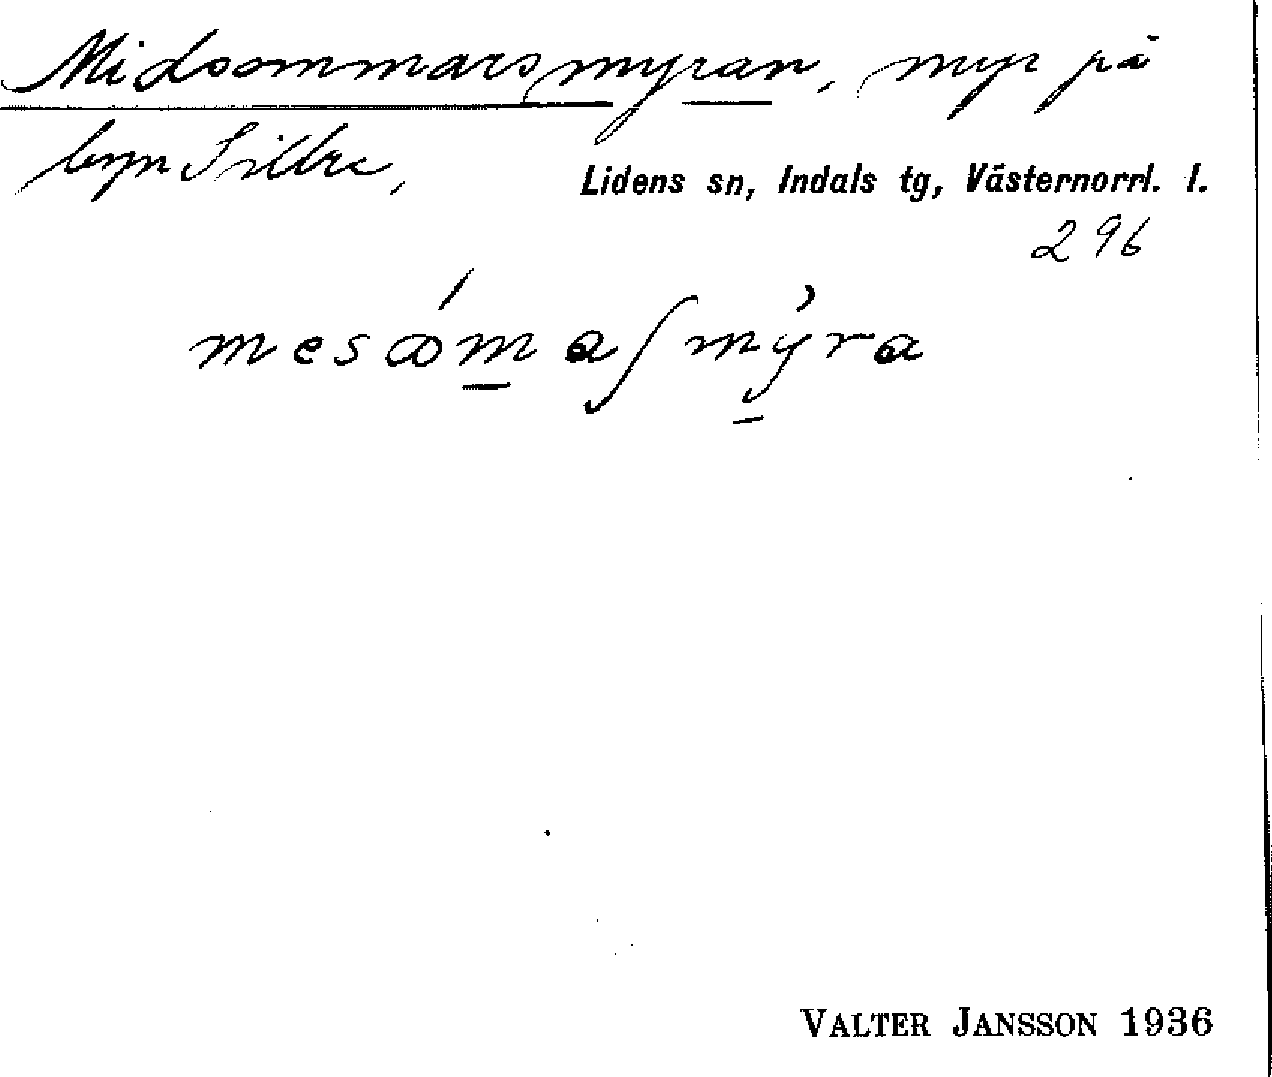 Midsommarsmyran, myr på
byn Sillre,
Lidens sn, Indals tg, Västernorrl. l.
296
mesꝏ́maſmy̓ra
VALTER JANSSON 1936